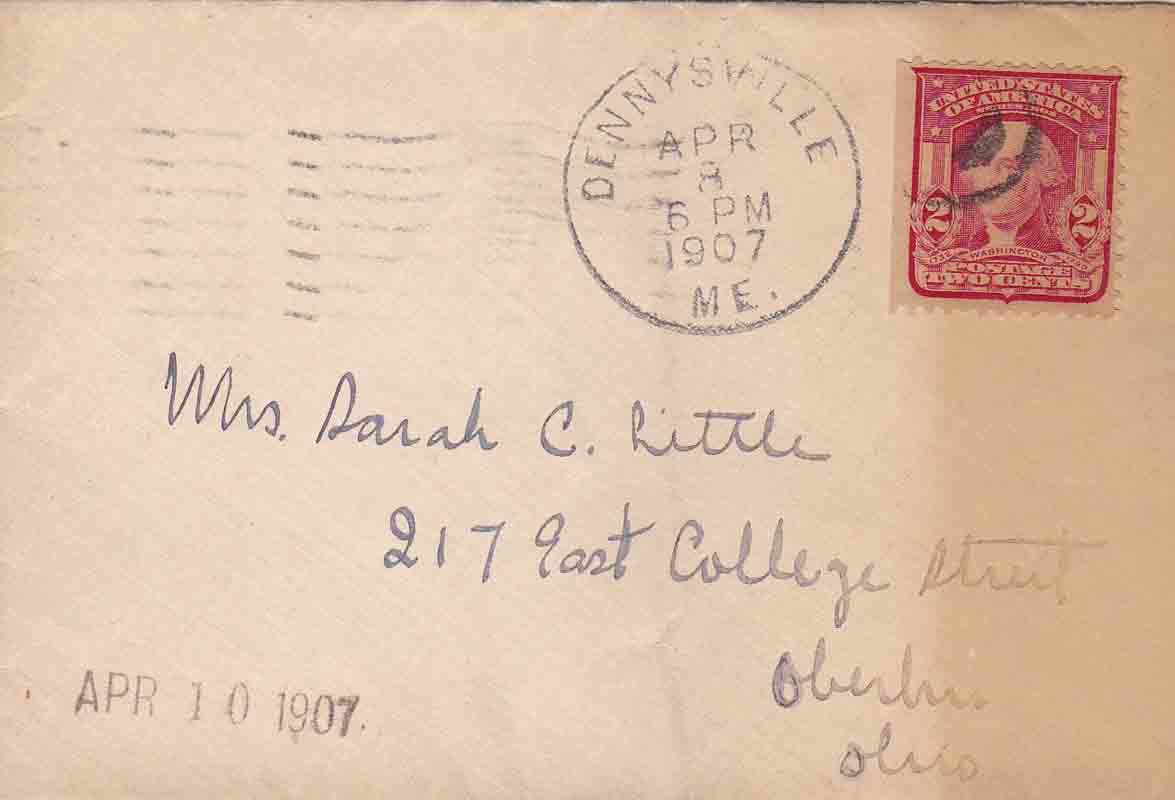 DENNYSVILLE
APR
8
6 PM
1907
ME.
UNITED STATES
OF AMERICA
2 2
1732 WASHINGTON 1799
POSTAGE
TWO CENTS
Mrs. Sarah C. Little
217 East College Street
Oberlin
Ohio
APR 10 1907.